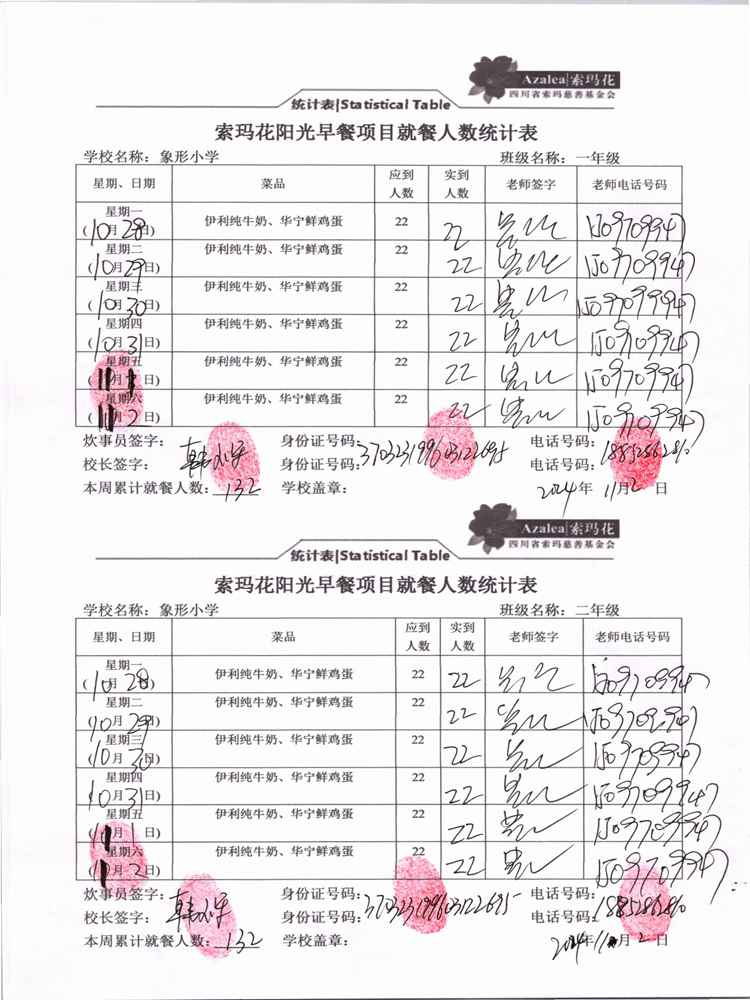 Azalea|索玛花
四川省索玛慈善基金会
统计表|Statistical Table
索玛花阳光早餐项目就餐人数统计表
学校名称：象形小学 班级名称：一年级
星期、日期 菜品 应到人数 实到人数 老师签字 老师电话号码
星期一
(10月28日) 伊利纯牛奶、华宁鲜鸡蛋 22 22
星期二
(10月29日) 伊利纯牛奶、华宁鲜鸡蛋 22 22
星期三
(10月30日) 伊利纯牛奶、华宁鲜鸡蛋 22 22
星期四
(10月31日) 伊利纯牛奶、华宁鲜鸡蛋 22 22
星期五
(11月1日) 伊利纯牛奶、华宁鲜鸡蛋 22 22
星期六
(11月2日) 伊利纯牛奶、华宁鲜鸡蛋 22 22
炊事员签字： 身份证号码： 电话号码：
校长签字： 身份证号码： 电话号码：
本周累计就餐人数：132 学校盖章： 2024年11月2日
Azalea|索玛花
四川省索玛慈善基金会
统计表|Statistical Table
索玛花阳光早餐项目就餐人数统计表
学校名称：象形小学 班级名称：二年级
星期、日期 菜品 应到人数 实到人数 老师签字 老师电话号码
星期一
(10月28日) 伊利纯牛奶、华宁鲜鸡蛋 22 22
星期二
(10月29日) 伊利纯牛奶、华宁鲜鸡蛋 22 22
星期三
(10月30日) 伊利纯牛奶、华宁鲜鸡蛋 22 22
星期四
(10月31日) 伊利纯牛奶、华宁鲜鸡蛋 22 22
星期五
(11月1日) 伊利纯牛奶、华宁鲜鸡蛋 22 22
星期六
(11月2日) 伊利纯牛奶、华宁鲜鸡蛋 22 22
炊事员签字： 身份证号码： 电话号码：
校长签字： 身份证号码： 电话号码：
本周累计就餐人数：132 学校盖章： 2024年11月2日